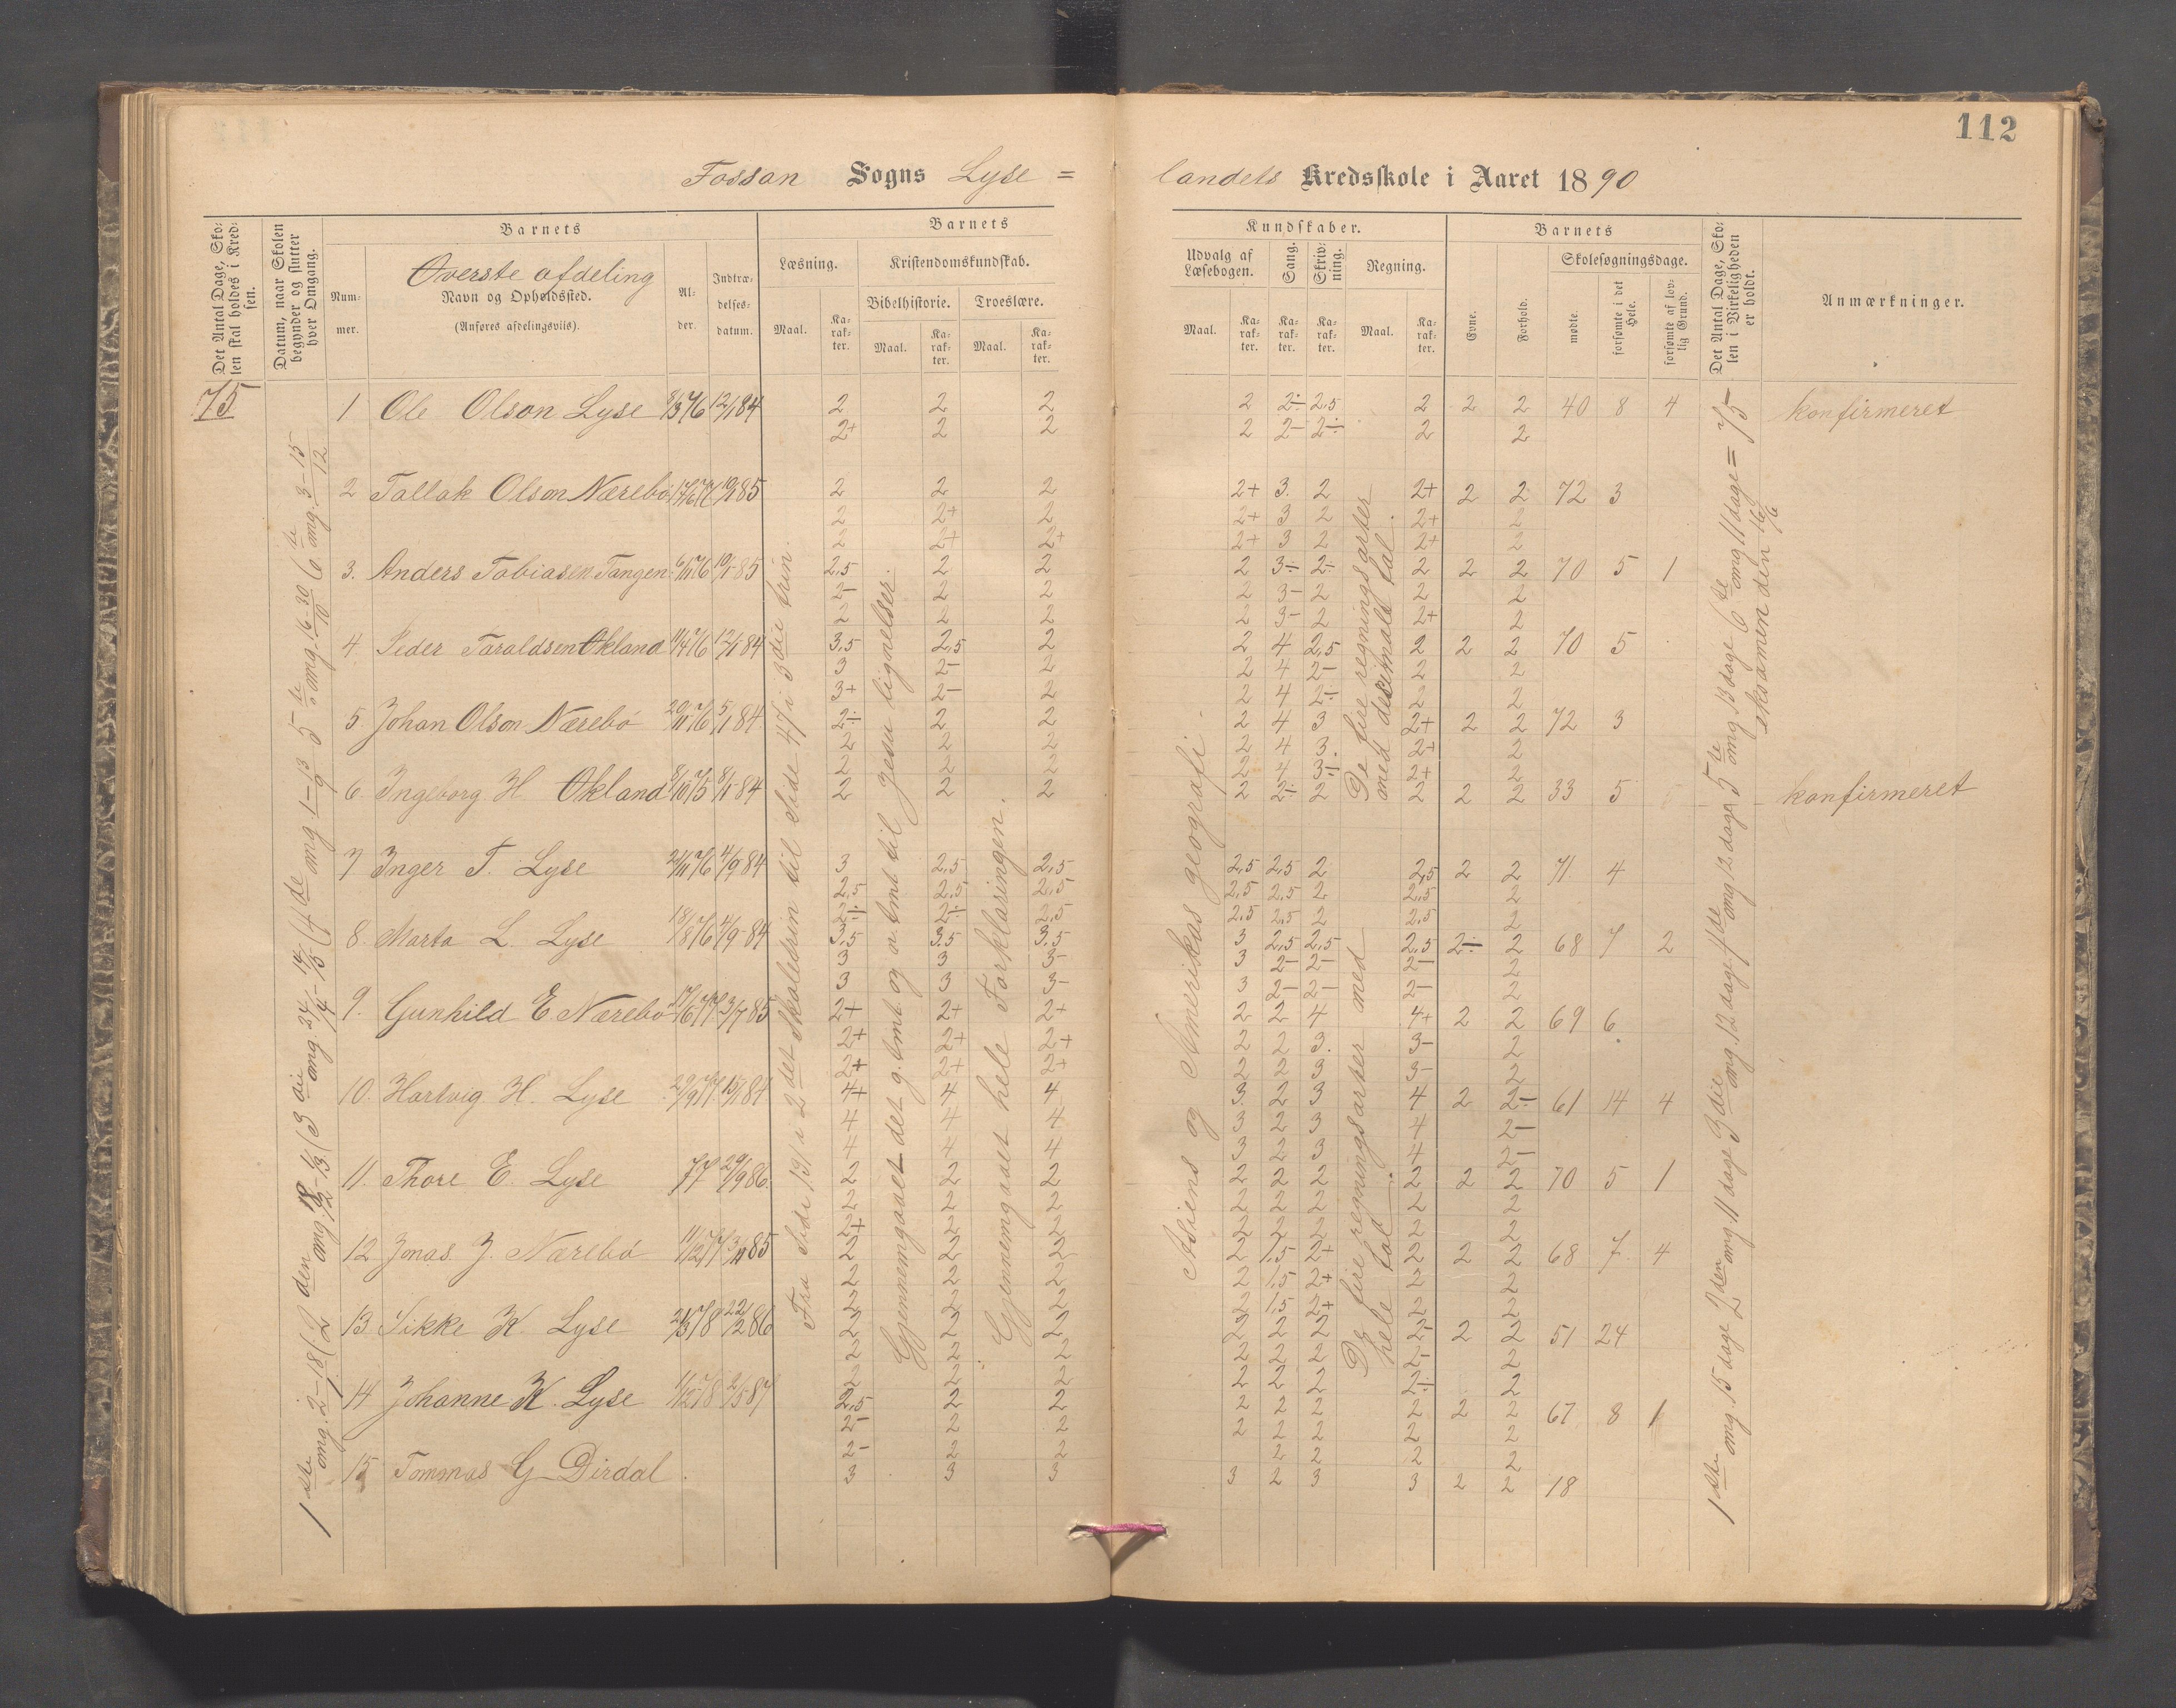 112
Fossan Sogns Lyse =
landets Kredsskole i Aaret 1890
Det Antal Dage, Skolen skal holdes i Kredsen.
Datum, naar Skolen begynder og slutter hver Omgang.
Barnets
Nummer.
Øverste afdeling
Navn og Opholdssted.
(Anføres afdelingsviis).
Alder.
Indtrædelsesdatum.
Barnets
Læsning.
Maal.
Karakter.
Kristendomskundskab.
Bibelhistorie.
Maal.
Karakter.
Troeslære.
Maal.
Karakter.
Kundskaber.
Udvalg af Læsebogen.
Maal.
Karakter.
Sang.
Karakter.
Skrivning.
Karakter.
Regning.
Maal.
Karakter.
Barnets
Evne.
Forhold.
Skolesøgningsdage.
mødte.
forsømte i det Hele.
forsømte af lovlig Grund.
Det Antal Dage, Skolen i Virkeligheden er holdt.
Anmærkninger.
75
1 Ole Olson Lyse 9/3 76 12/1 84 2 2 2 2 2÷ 2,5 2 2 2 40 8 4 konfirmeret
2+ 2 2 2 2- 2÷ 2 2
2 Tallak Olson Nærebø 17/6 77 19/1 85 2 2 2 2+ 3 2 2+ 2 2 72 3
2 2+ 2 2+ 3 2 2+ 2
2 2+ 2+ 2+ 3 2 2+ 2
3. Anders Tobiasen Tangen 6/11 76 19/1 85 2,5 2 2 2 3÷ 2- 2 2 2 70 5 1
2- 2 2 2 3- 2 2 2
2 2 2 2 3- 2 2+ 2
4 Peder Taraldsen Økland 11/4 76 12/1 84 3,5 2,5 2 2 4 2,5 2 2 2 70 5
3 2- 2 2 4 2- 2 2
3+ 2- 2 2 4 2÷ 2 2
5 Johan Olson Nærebø 20/11 76 5/1 84 2÷ 2 2 2 4 3 2+ 2 2 72 3
2 2 2 2 4 3. 2+ 2
2 2 2 2 4 3÷ 2+ 2
6. Ingeborg H Økland 9/10 75 8/1 84 2 2 2 2 2÷ 2 2 2 2 33 5 konfirmeret
7 Inger T. Lyse 21/11 76 4/9 84 3 2,5 2,5 2,5 2,5 2 2,5 2 2 71 4
2,5 2,5 2,5 2,5 2,5 2 2,5 2
2÷ 2÷ 2,5 2,5 2,5 2 2,5 2
8. Marta L. Lyse 18/8 76 4/9 84 3,5 3,5 3,5 3 2,5 2,5 2,5 2÷ 2 68 7 2
3 3 3- 3 2- 2- 2- 2
3 3 3- 3 2- 2- 2- 2
9. Gunhild E Nærebø 17/6 77 3/7 85 2+ 2+ 2+ 2 2 4 4+ 2 2 69 6
2+ 2+ 2+ 2 2 3. 3- 2
2+ 2+ 2+ 2 2 3 3- 2
10. Hartvig H. Lyse 29/9 77 15/1 84 4+ 4 4 3 2 3 4 2 2÷ 61 14 4
4 4 4 3 2 3 4 2-
4 4 4 3 2 3 4 2-
11. Thore E. Lyse 77 29/9 86 2 2 2 2 2 2 2 2 2 70 5 1
2 2 2 2 2 2 2 2
2+ 2 2 2 2 2 2 2
12 Jonas J. Nærebø 11/12 77 3/11 85 2 2 2 2 1,5 2+ 2 2 2 68 7 4
2 2 2 2 1,5 2+ 2 2
2 2 2 2 1,5 2+ 2 2
13 Sikke K. Lyse 21/3 78 22/2 86 2 2 2 2 2 2 2- 2 2 51 24
2 2 2 2 2 2 2- 2
2 2 2 2 2 2 2÷ 2
14 Johanne K. Lyse 11/12 78 2/5 87 2,5 2 2 2 2 2 2 2 2 67 8 1
2- 2 2 2 2 2 2 2
2- 2 2 2 2 2 2
15 Tommas G Dirdal 3 3 3 3 2 3 3 2 2 18
Fra Side 131 i 2det Skoletrin til Side 47 i 3die trin.
Gjennemgaaet det g. tmt. og n. tmt til Jesu lignelser.
Gjennemgaaet hele Forklaringen.
Asiens og Amerikas geografi.
De fire regningsarter
med decimalt tal.
De fire regningsarter med
hele tal.
1ste omg. 15 dage 2den omg 11 dage 3die omg. 12 dage 4de omg 12 dage 5te omg 13 dage 6te omg 11 dage = 75
eksamen den 16/6